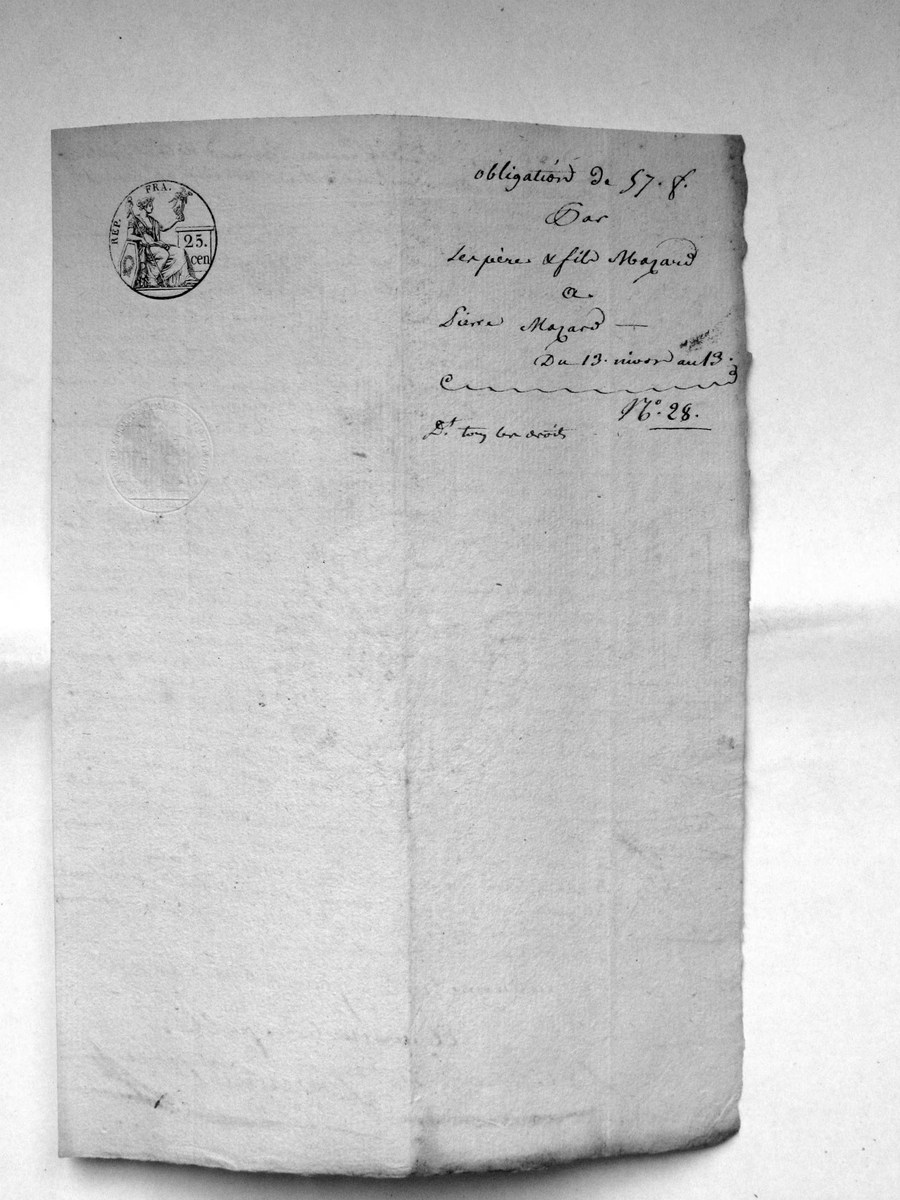 RÉP. FRA.
25.
cen
obligation de 57. f.
Par
les père & fils Mazard
a
Pierre Mazard
Du 13. nivos an 13.
N.º 28.
D.t tous les droits